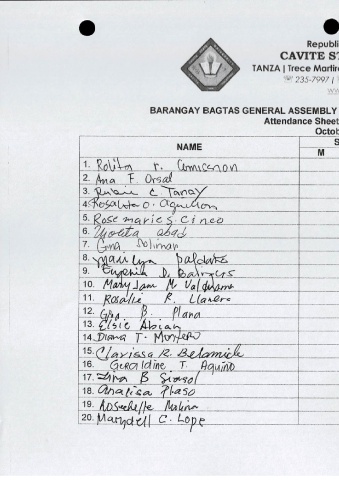 Republi
CAVITE ST
TANZA | Trece Martire
235-7997 |
www
BARANGAY BAGTAS GENERAL ASSEMBLY
Attendance Sheet
Octob
NAME
S
M
1. Rolita r.
2. Ana F Orsal
3. C Tanay
4. Rosalita O.
5. Rosemarie S. Cinco
6. Violita abad
7. Gina Soliman
8. Marilyn baldado
9. Eugenia D.
10. Mary Jam M Valderama
11. Rosalie R. Llanera
12. Gina B. Plana
13. Elsie Abian
14. Diana T. Montero
15. Clarissa R. Belamide
16. Geraldine T. Aquino
17. B
18. analisa
19. Rosechelle Molina
20. Marydell C. Lope